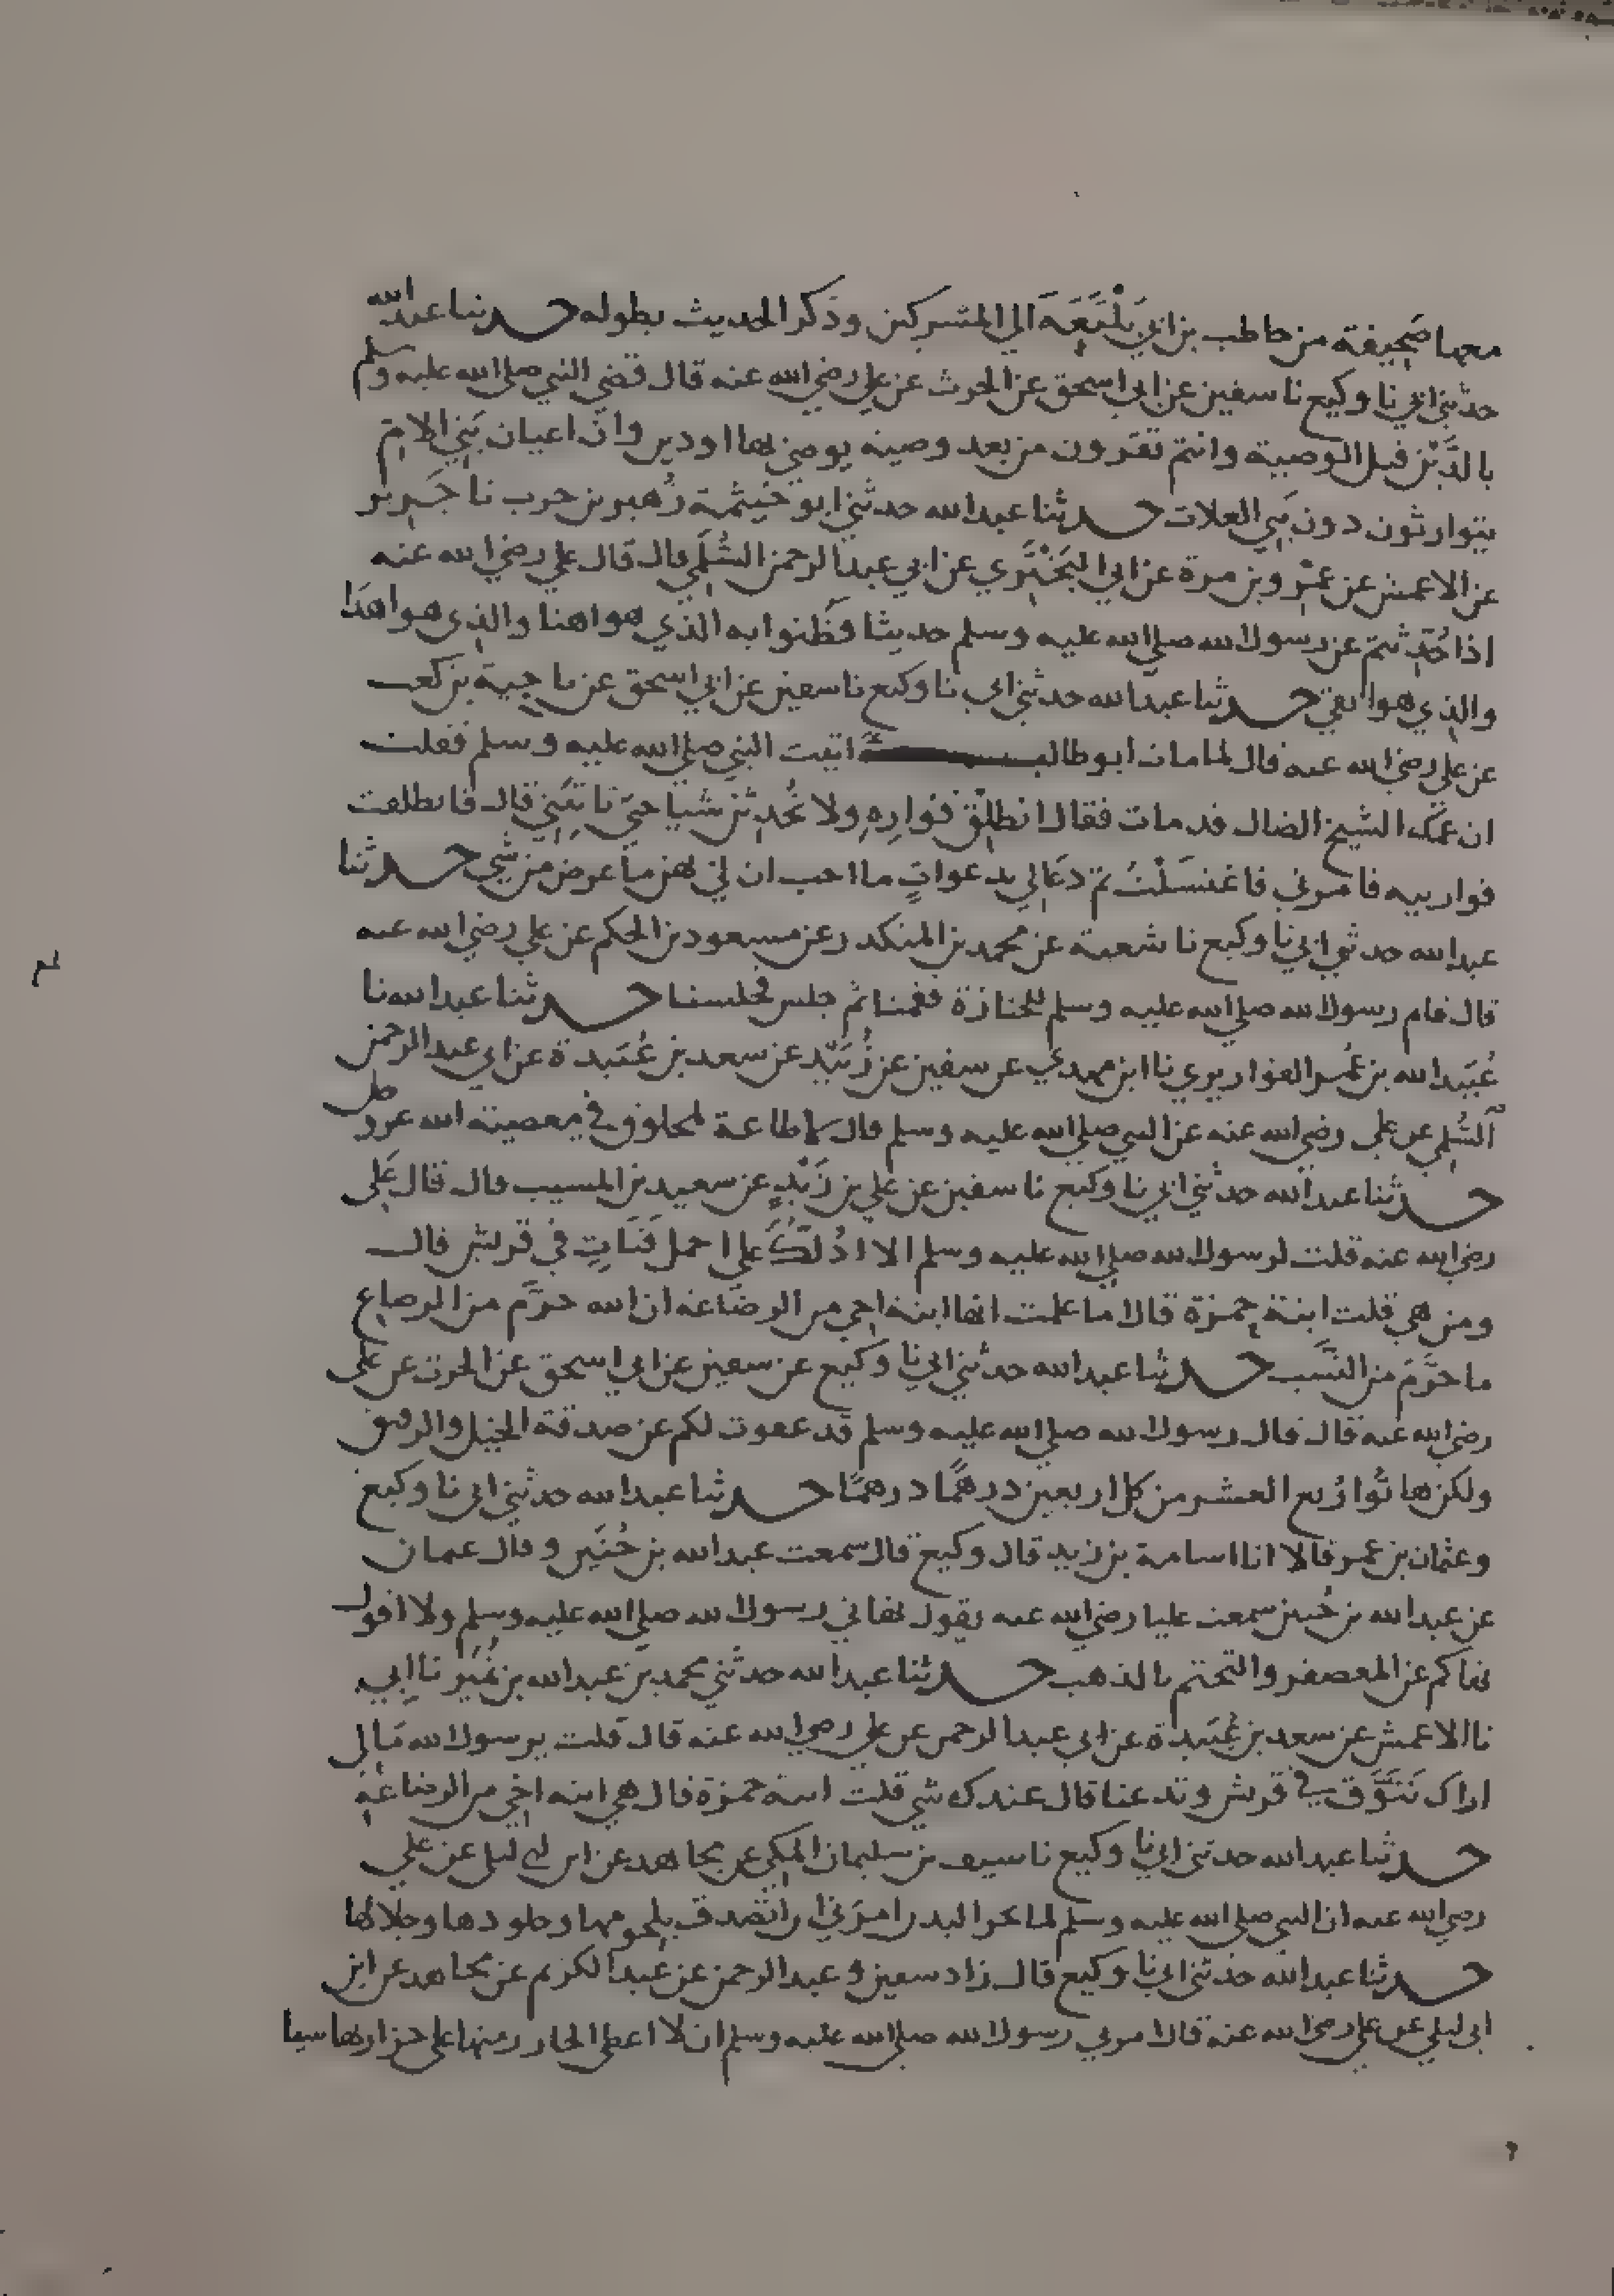 معها صَحِيفة من حاطب بن ابي بَلْتَعَةَ الي المشركين وذكر الحديث بطوله حدثنا عبدالله
حدثني ابي نا وكيع نا سفين عن ابي اسحق عن الحرث عن علي رضي الله عنه قال قضي النبي صلي الله عليه وسلم
بالدَّيْن قبل الوصية وانتم تقرون من بعد وصيه يوصي بها او دين وانّ اعيان بَنِي الامّ
يتوارثون دون بَنِي العلات حدثنا عبدالله حدثني ابو خيثمة زُهير بن حرب نا جَرِير
عن الاعمش عن عَمْرو بن مرة عن ابي البَخْتَرِي عن ابي عبدالرحمن السُّلَمِي قال قال علي رضي الله عنه
اذا حُدِّثتم عن رسول الله صلي الله عليه وسلم حديثا فظُنوا به الذي هو اهنا والذي هو اهدَا
والذي هو اتقي حدثنا عبدالله حدثني ابي نا وكيع نا سفين عن ابي اسحق عن ناجية بن كعب
عن علي رضي الله عنه قال لما مات ابو طالب اتيت النبي صلي الله عليه وسلم فقلت
ان عمّك الشيخ الضال قد مات فقال انطلِقْ فوارِهِ ولا تُحْدِثَنّ شيا حتي تاتيَنِي قال فانطلقت
فواريته فامرني فاغتسَلْتُ ثم دعَا لِي بدعواتٍ ما احب ان لي بهن ما عرض من شَيٍ حدثنا
عبدالله حدثني ابي نا وكيع نا شعبة عن محمد بن المنكدر عن مسعود بن الحكم عن علي رضي الله عنه
قال قام رسول الله صلي الله عليه وسلم للجنازة فقمنا ثم جلس فجلسنا حدثنا عبدالله نا
عُبَيدالله بن عُمر القواريري نا ابن مهدي عن سفين عن زُبَيْد عن سعد بن عُبَيدة عن ابي عبدالرحمن
السُّلَمِي عن علي رضي الله عنه عن النبي صلي الله عليه وسلم قال لا طاعة لمخلوق في معصية الله عز وجل
حدثنا عبدالله حدثني ابي نا وكيع نا سفين عن علي بن زَيْدٍ عن سعيد بن المسيب قال قال عَلي
رضي الله عنه قلت لرسول الله صلي الله عليه وسلم الا ادُلُّكَ علي اجمل فَتَاتٍ في قريش قال
ومن هي قلت ابنة حمزة قال اما علمت انها ابنة اخي من الرضَاعة ان الله حرّم من الرضاع
ما حَرَّمَ من النَّسَب حدثنا عبدالله حدثني ابي نا وكيع عن سفين عن ابي اسحق عن الحرث عن علي
رضي الله عنه قال قال رسول الله صلي الله عليه وسلم قد عفوت لكم عن صدقة الخيل والرقيق
ولكن هاتُوا رُبع العشر من كل اربعين درهمًا درهمًا حدثنا عبدالله حدثني ابي نا وكيع
وعثمان بن عمر قالا انا اسامة بن زيد قال وكيع قال سمعت عبدالله بن حُنَين وقال عثمان
عن عبدالله بن حُنين سمعت عليا رضي الله عنه يقول نهاني رسول الله صلي الله عليه وسلم ولا اقول
نهاكم عن المعصفر والتختم بالذهب حدثنا عبدالله حدثني محمد بن عبدالله بن نُمَيْر نا ابي
نا الاعمش عن سعد بن عُبَيدة عن ابي عبدالرحمن عن علي رضي الله عنه قال قلت يرسول الله مَالي
اراك تَتَنَوَّق في قريش وتدعنا قال عندك شي قلت ابنة حمزة قال هي ابنه اخي من الرضاعة
حدثنا عبدالله حدثني ابي نا وكيع نا سيف بن سليمان المكي عن مجاهد عن ابن ابي ليلي عن علي
رضي الله عنه ان النبي صلي الله عليه وسلم لما نحر البدن امرني ان اتصدق بلحومها وجلودها وجلالها
حدثنا عبدالله حدثني ابي نا وكيع قال زاد سفين و عبدالرحمن عن عبدالكريم عن مجاهد عن ابن
ابي ليلي عن علي رضي الله عنه قال امرني رسول الله صلي الله عليه وسلم ان لا اعطي الجازر منها علي جزارتها شيا